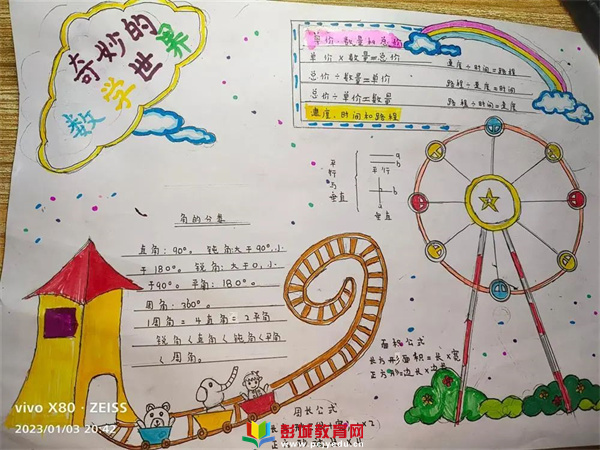 奇妙的
数学世界
单价、数量和总价
单价×数量=总价
总价÷数量=单价
总价÷单价=数量
速度、时间和路程
速度×时间=路程
路程÷速度=时间
路程÷时间=速度
平行与垂直
a
b
平行
b
垂直
角的分类
直角:90°。钝角大于90°,小
于180°。锐角:大于0,小
于90°。平角:180°。
周角:360°。
1周角=4直角=2平角
锐角<直角<钝角<平角
<周角。
面积公式
长方形面积=长×宽
正方形=边长×边长
周长公式
vivo X80 · ZEISS
2023/01/03 20:42
彭城教育网
www.pcjyedu.cn